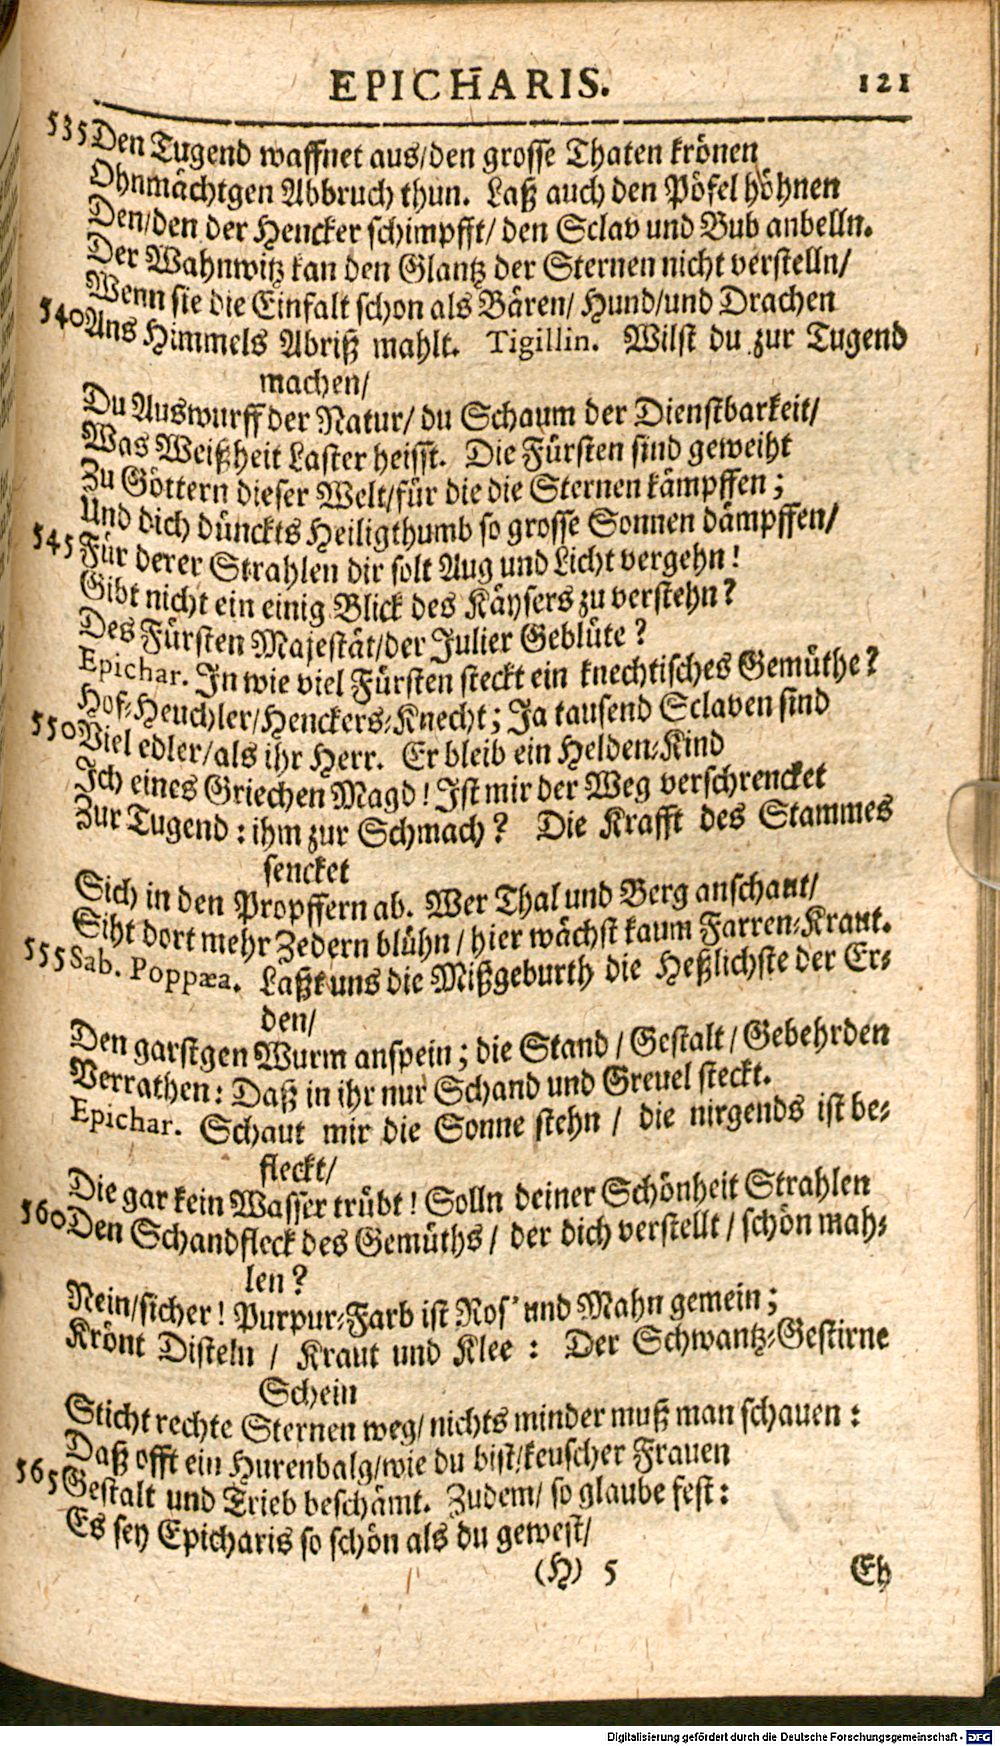 EPICHARIS. 121
535 Den Tugend waffnet aus/den grosse Thaten krönen
Ohnmächtgen Abbruch thun. Laß auch den Pöfel höhnen
Den/den der Hencker schimpfft/ den Sclav und Bub anbelln.
Der Wahnwitz kan den Glantz der Sternen nicht verstelln/
Wenn sie die Einfalt schon als Bären/ Hund/und Drachen
540 Ans Himmels Abriß mahlt. Tigillin. Wilst du zur Tugend
machen/
Du Auswurff der Natur/ du Schaum der Dienstbarkeit/
Was Weißheit Laster heisst. Die Fürsten sind geweiht
Zu Göttern dieser Welt/für die die Sternen kämpffen;
Und dich dünckts Heiligthumb so grosse Sonnen dämpffen/
545 Für derer Strahlen dir solt Aug und Licht vergehn!
Gibt nicht ein einig Blick des Käysers zu verstehn?
Des Fürsten Majestät/der Julier Geblüte?
Epichar. In wie viel Fürsten steckt ein knechtisches Gemüthe?
Hof-Heuchler/Henckers-Knecht; Ja tausend Sclaven sind
550 Viel edler/als ihr Herr. Er bleib ein Helden-Kind
Ich eines Griechen Magd! Ist mir der Weg verschrencket
Zur Tugend: ihm zur Schmach? Die Krafft des Stammes
sencket
Sich in den Propffern ab. Wer Thal und Berg anschaut/
Siht dort mehr Zedern blühn/ hier wächst kaum Farren-Kraut.
555 Sab. Poppæa. Laßt uns die Mißgeburth die Heßlichste der Er-
den/
Den garstgen Wurm anspein; die Stand/ Gestalt/ Gebehrden
Verrathen: Daß in ihr nur Schand und Greuel steckt.
Epichar. Schaut mir die Sonne stehn/ die nirgends ist be-
fleckt/
Die gar kein Wasser trübt! Solln deiner Schönheit Strahlen
560 Den Schandfleck des Gemüths/ der dich verstellt/ schön mah-
len?
Nein/sicher! Purpur-Farb ist Ros' und Mahn gemein;
Krönt Disteln/ Kraut und Klee: Der Schwantz-Gestirne
Schein
Sticht rechte Sternen weg/ nichts minder muß man schauen:
Daß offt ein Hurenbalg/wie du bist/keuscher Frauen
565 Gestalt und Trieb beschämt. Zudem/ so glaube fest:
Es sey Epicharis so schön als du gewest/
(H) 5 Eh
Digitalisierung gefördert durch die Deutsche Forschungsgemeinschaft - DFG